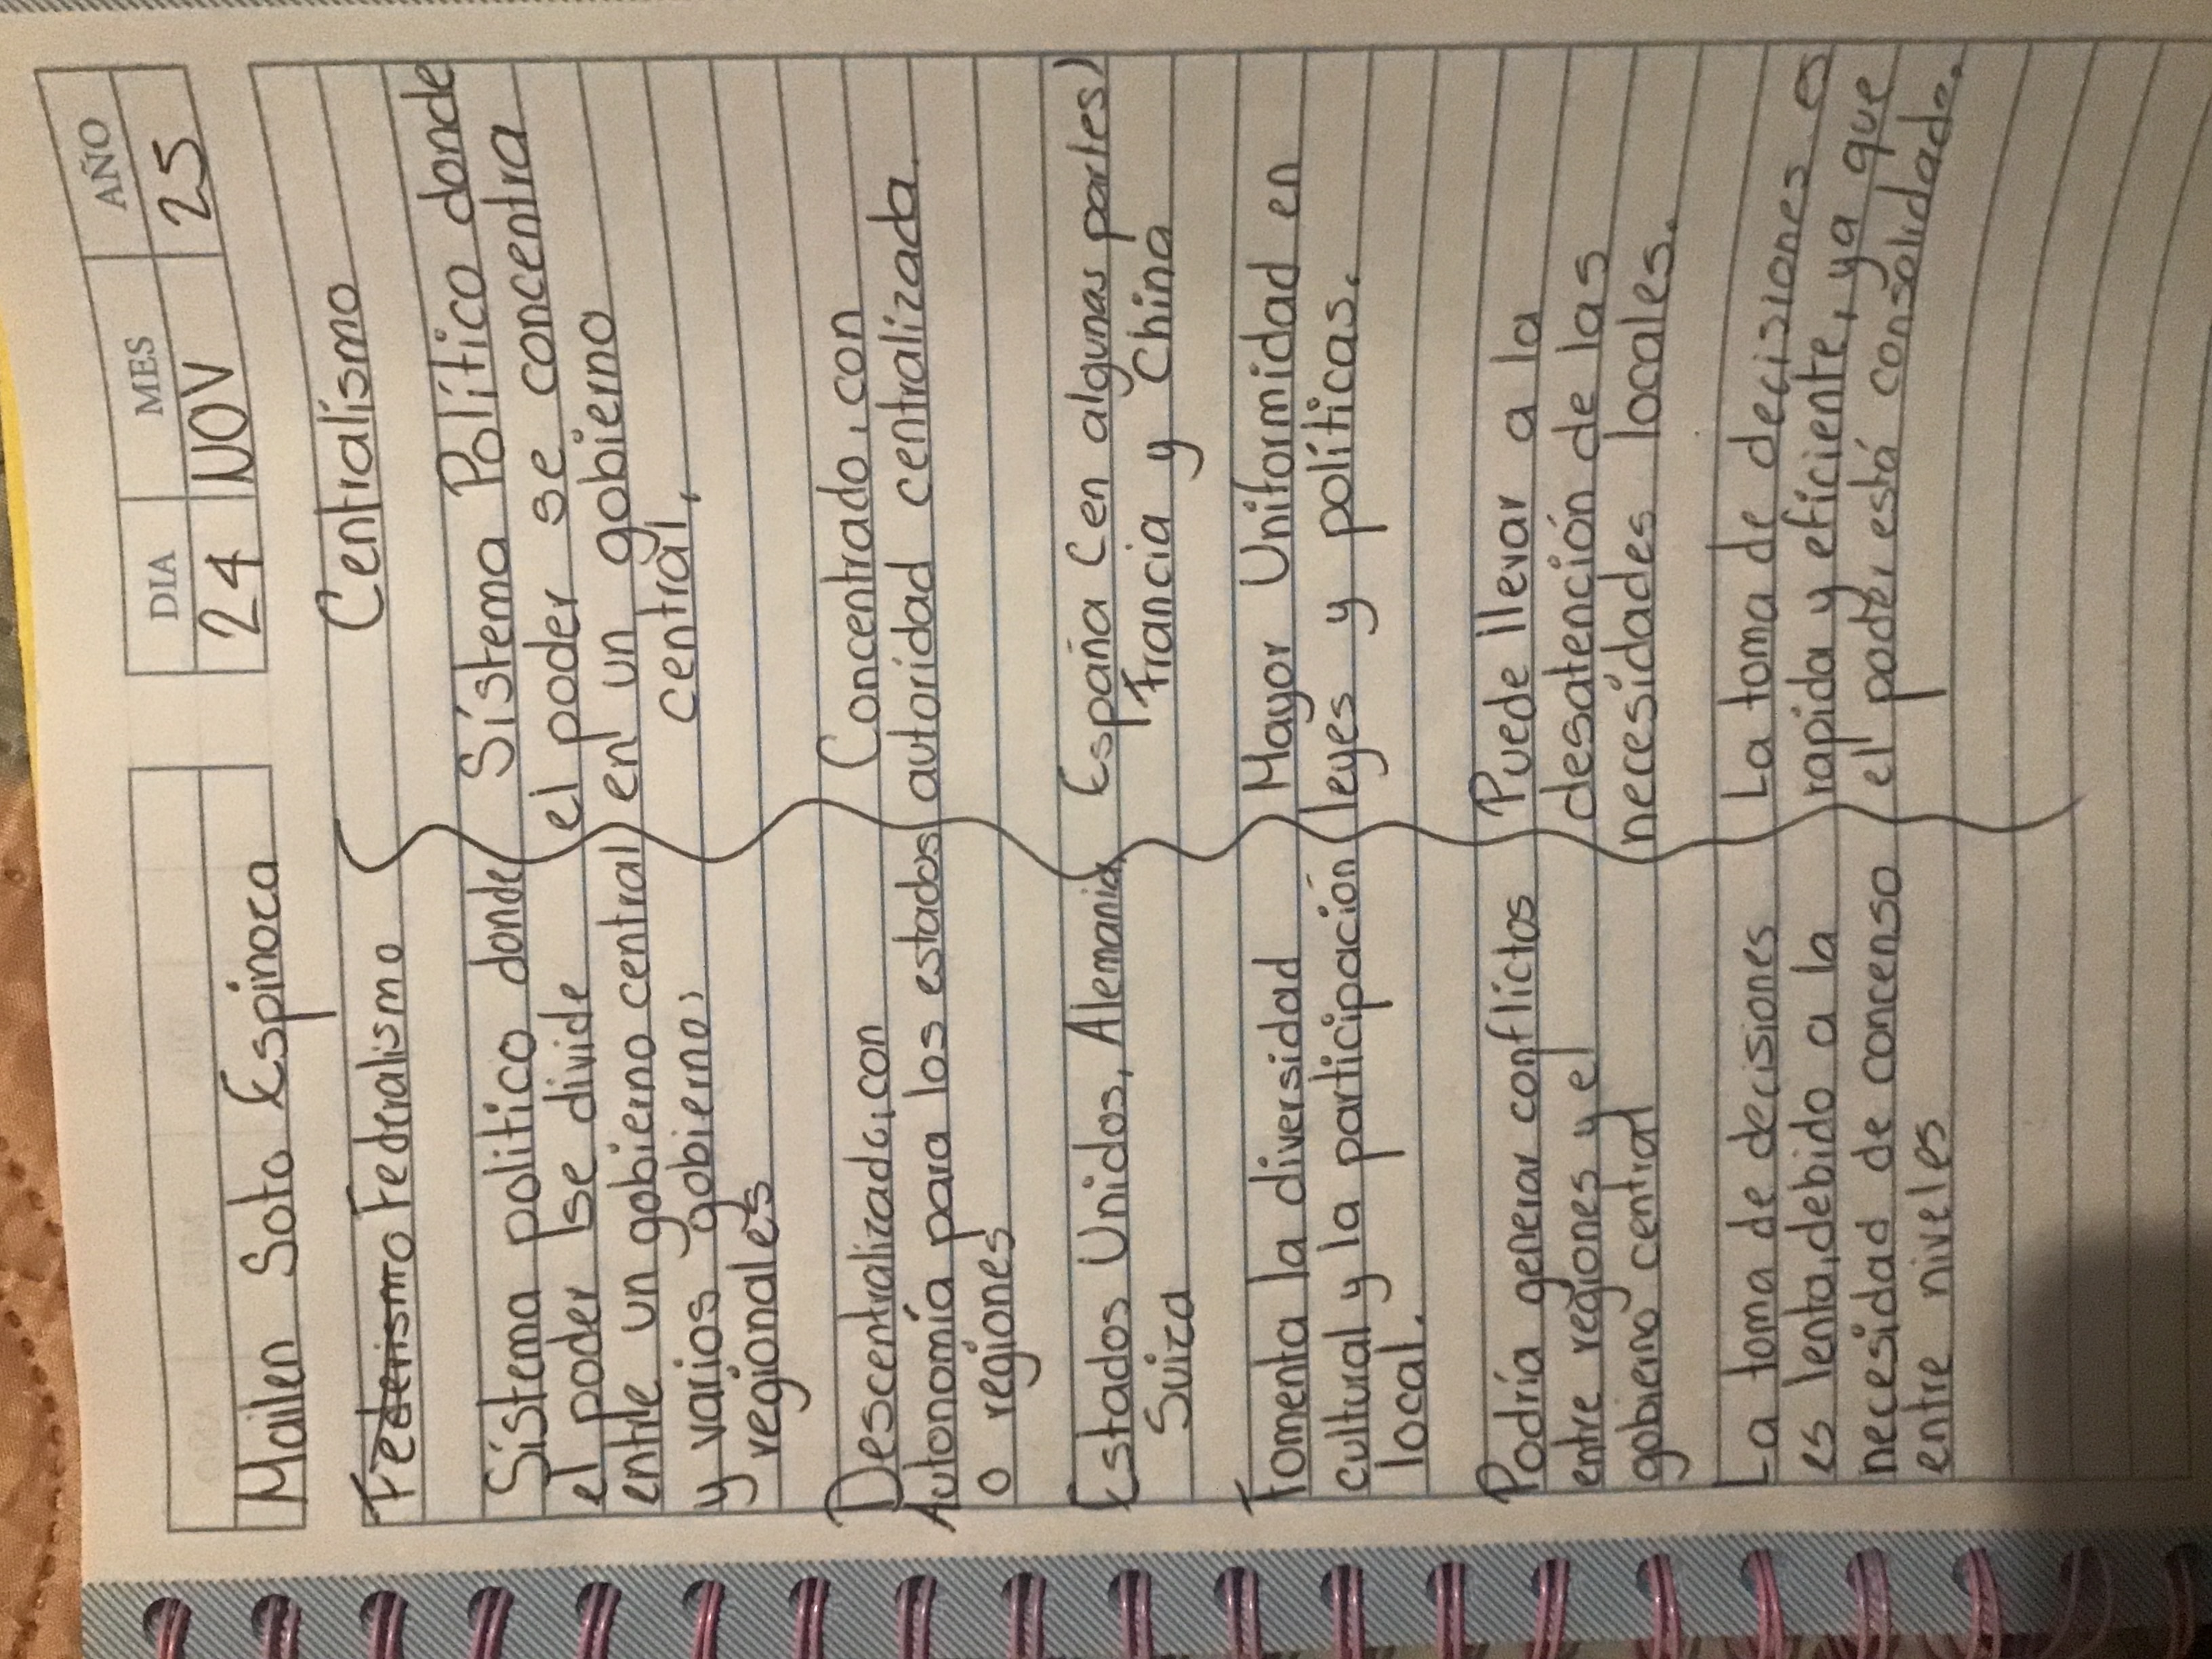 DIA MES AÑO
24 NOV 25
Mailen Soto Espinoca
Federismo Federalismo
Sístema politico donde
el poder se divide
entre un gobierno central
y varios gobiernos
regionales
Descentralizado, con
Autonomía para los estados
o regiones
Estados Unidos, Alemania,
Suiza
Fomenta la diversidad
cultural y la participación
local.
Podría generar conflictos
entre regiones y el
gobierno central
La toma de decisiones
es lenta, debido a la
necesidad de concenso
entre niveles
Centralismo
Sístema Político donde
el poder se concentra
en un gobierno
central,
Concentrado, con
autoridad centralizada.
España (en algunas partes)
Francia y China
Mayor Uniformidad en
leyes y políticas.
Puede llevar a la
desatención de las
necesidades locales.
La toma de decisiones es
rapida y eficiente, ya que
el poder está consolidado.